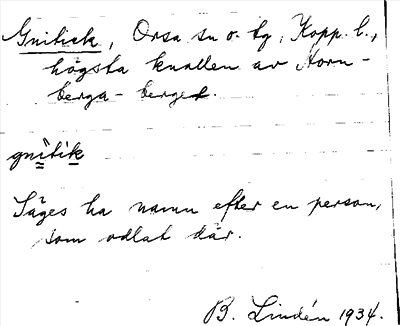 Gnitick, Orsa sn o. tg, Kopp. l.,
högsta knallen av Horn-
berga-berget.
gnìtik
Säges ha namn efter en person,
som odlat där.
B. Lindén 1934.